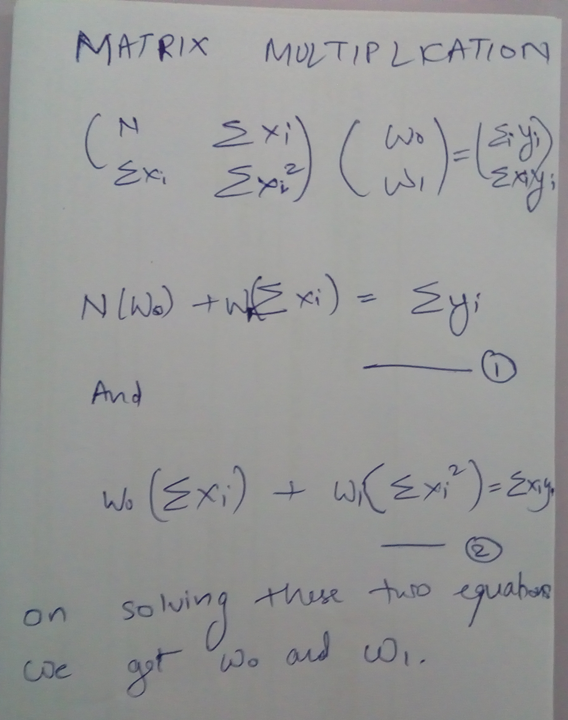 MATRIX MULTIPLICATION
( N Σxi ) ( w0 ) = ( Σiyi )
( Σxi Σxi² ) ( w1 ) ( Σxiyi )
N(W0) + W1(Σxi) = Σyi
①
And
W0 (Σxi) + W1(Σxi²) = Σxiyi
②
on solving these two equations
we get w0 and w1.